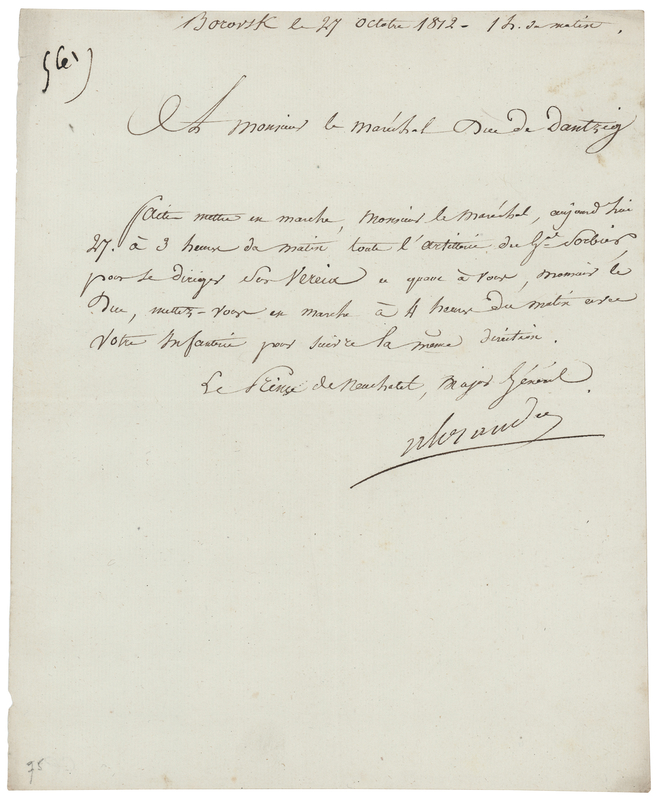 Borovsk le 27 octobre 1812 - 1 h. du matin.
A Monsieur le maréchal Duc de Dantzig
faites mettre en marche, Monsieur le maréchal, aujourd'hui
27. à 3 heures du matin toute l'artillerie du Gal Sorbier
pour se diriger sur Vereia et quant à vous, monsieur le
Duc, mettez-vous en marche à 4 heures du matin avec
votre Infanterie pour suivre la même direction.
Le Prince de Neuchatel, Major Général.
Alexandre
75